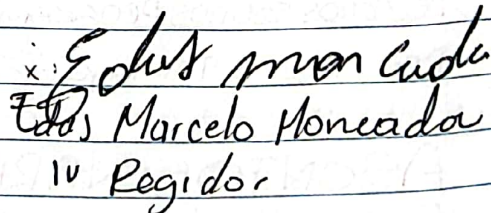 x: Edas moncada
Edas Marcelo Moncada
IV Regidor